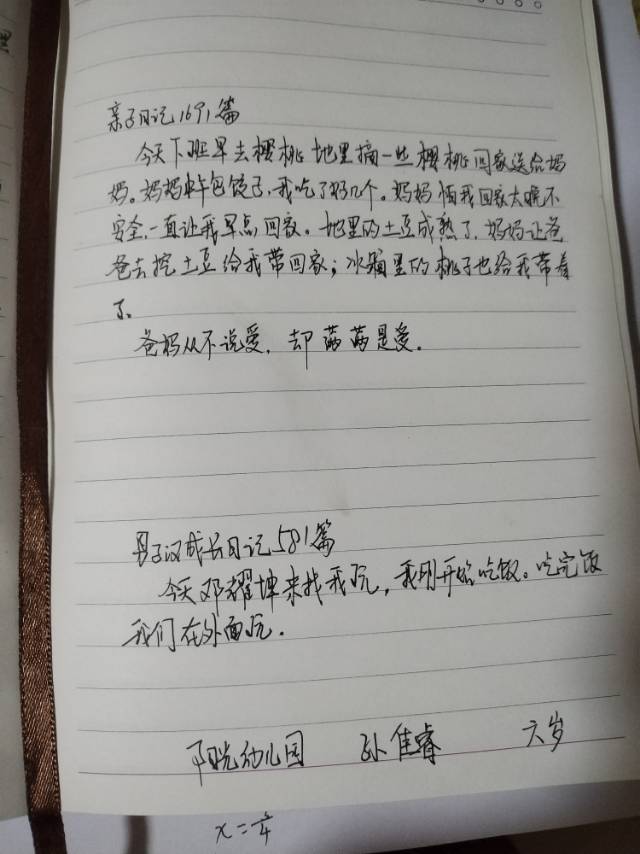 亲子日记1691篇
今天下班早去樱桃地里摘一些樱桃回家送给妈
妈。妈妈中午包饺子,我吃了好几个。妈妈怕我回家太晚不
安全,一直让我早点回家。地里的土豆成熟了,妈妈让爸
爸去挖土豆给我带回家;冰箱里的桃子也给我带着
了。
爸妈从不说爱,却满满是爱。
男子汉成长日记581篇
今天邓耀坤来找我玩,我刚开始吃饭。吃完饭
我们在外面玩.
阳光幼儿园 孙佳睿 六岁
x=